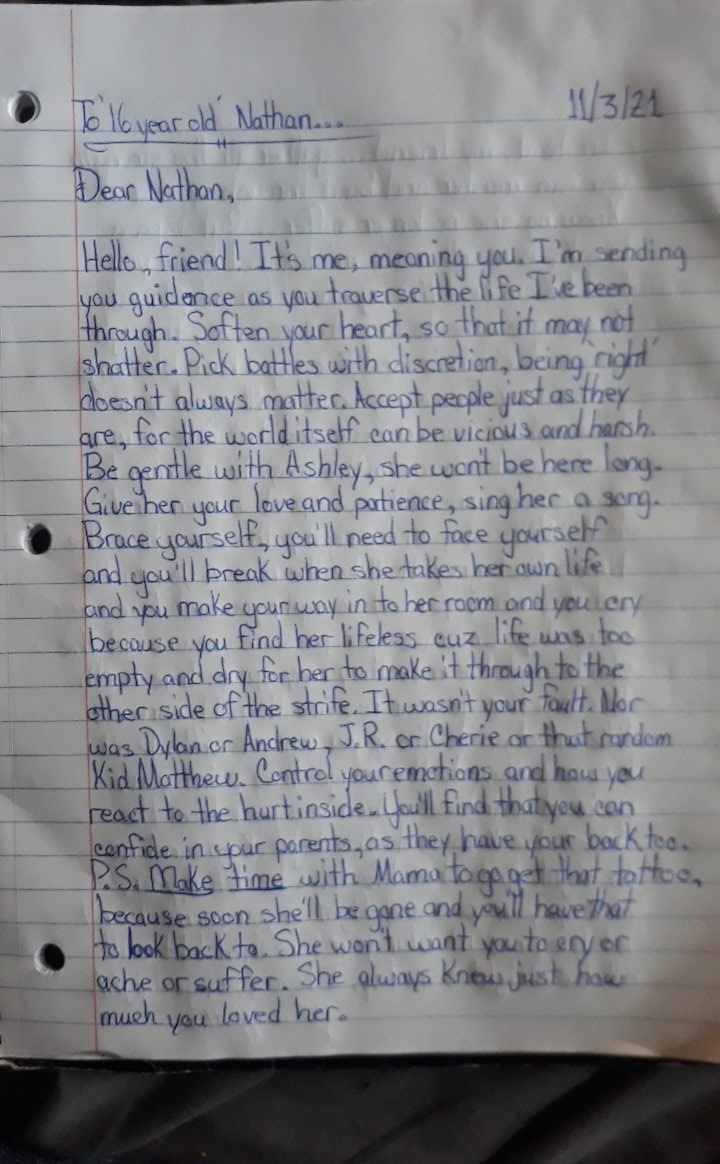 To '16 year old' Nathan...
11/3/21
Dear Nathan,
Hello, friend! It's me, meaning you. I'm sending
you guidence as you traverse the life I've been
through. Soften your heart, so that it may not
shatter. Pick battles with discretion, being 'right'
doesn't always matter. Accept people just as they
are, for the world itself can be vicious and harsh.
Be gentle with Ashley, she won't be here long.
Give her your love and patience, sing her a song.
Brace yourself, you'll need to face yourself
and you'll break when she takes her own life
and you make your way in to her room and you cry
because you find her lifeless cuz life was too
empty and dry for her to make it through to the
other side of the strife. It wasn't your fault. Nor
was Dylan or Andrew, J.R. or Cherie or that random
Kid Matthew. Control your emotions and how you
react to the hurt inside. You'll find that you can
confide in your parents, as they have your back too.
P.S. Make time with Mama to go get that tattoo,
because soon she'll be gone and you'll have that
to look back to. She won't want you to cry or
ache or suffer. She always knew just how
much you loved her.